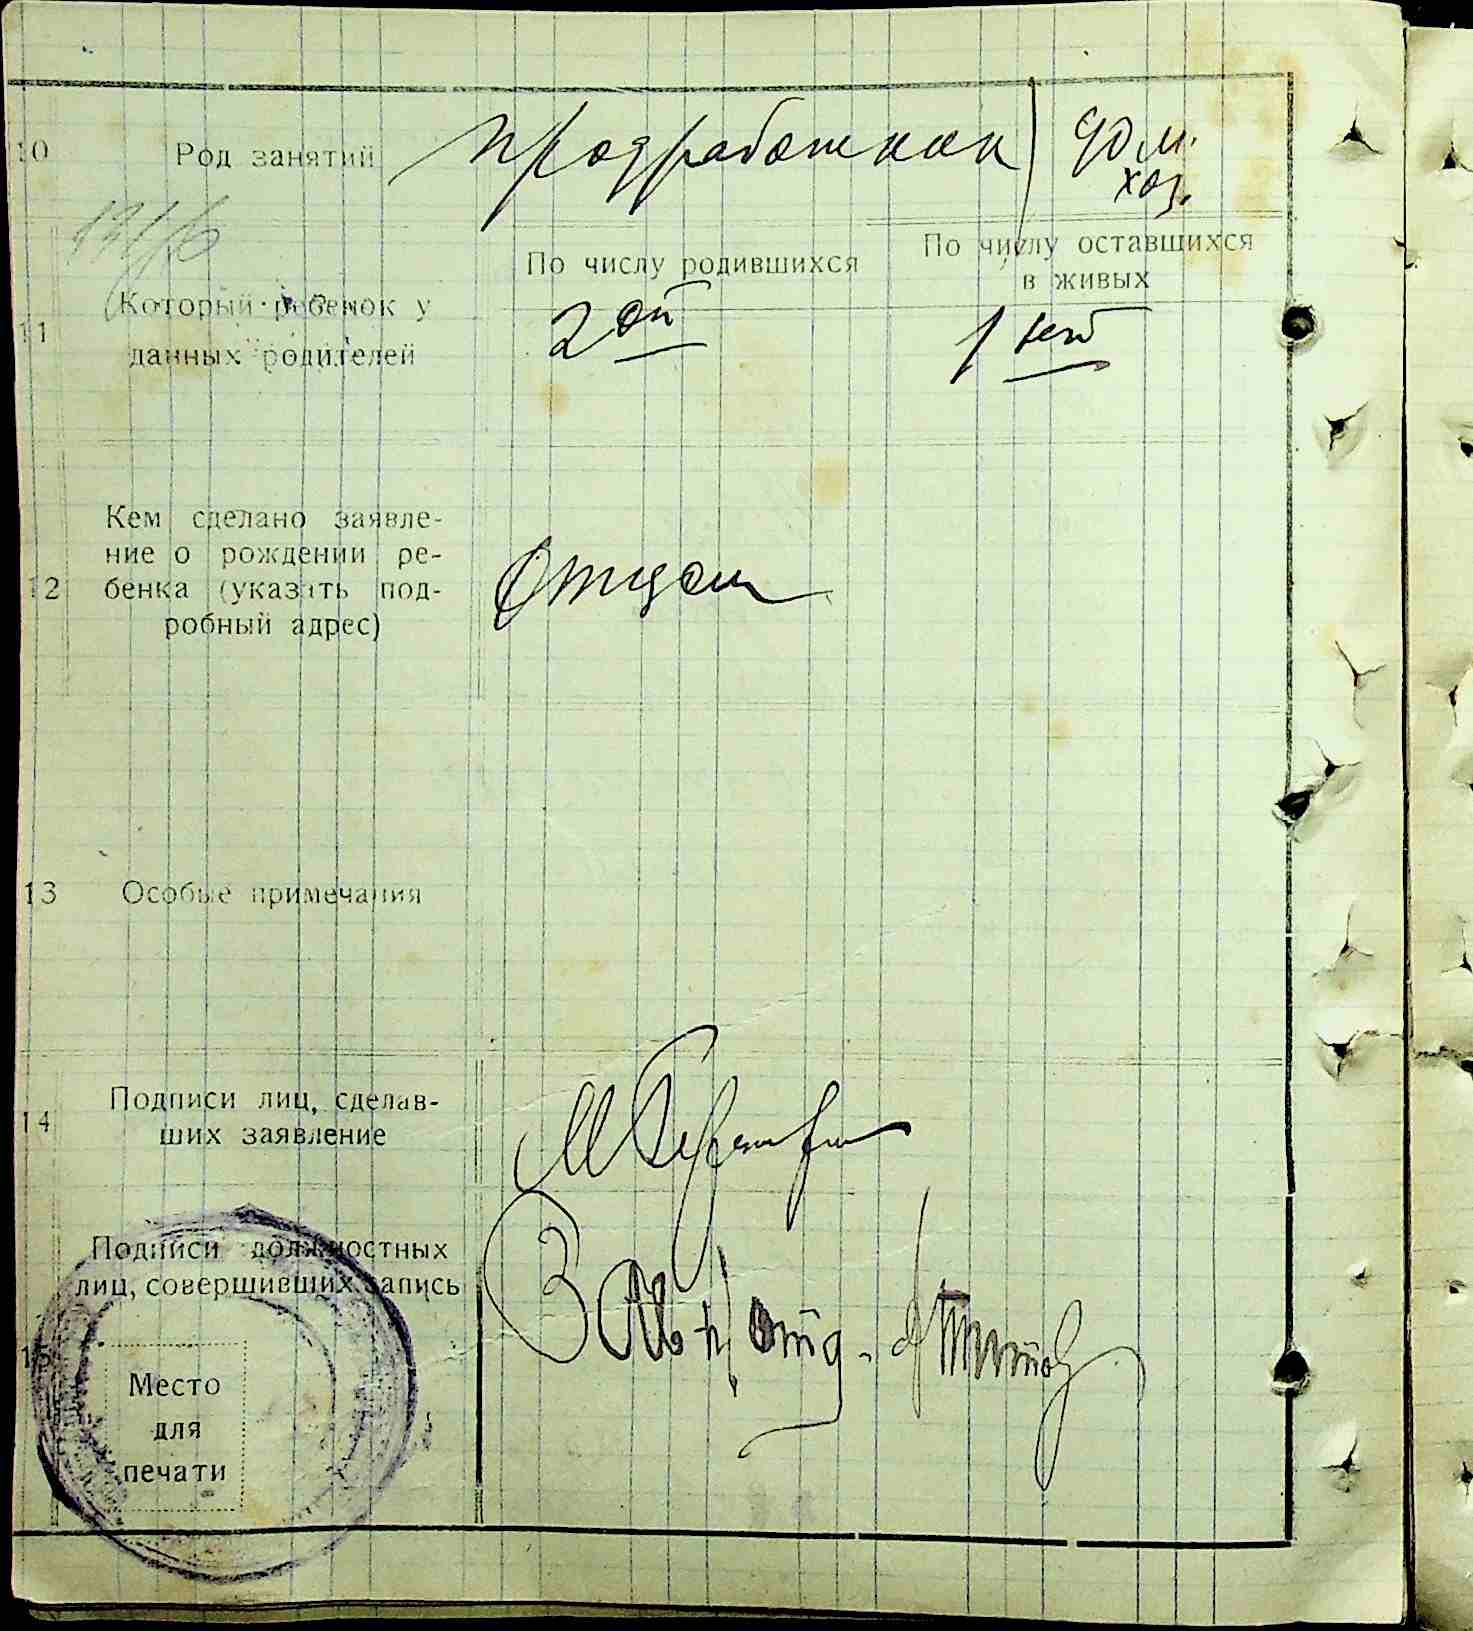 10 Род занятий продработник дом.
хоз.
По числу родившихся
По числу оставшихся
в живых
11 Который ребенок у
данных родителей
2 ой
1
12 Кем сделано заявле-
ние о рождении ре-
бенка (указать под-
робный адрес)
Отцом
13 Особые примечания
14 Подписи лиц, сделав-
ших заявление
15 Подписи должностных
лиц, совершивших запись
Место
для
печати